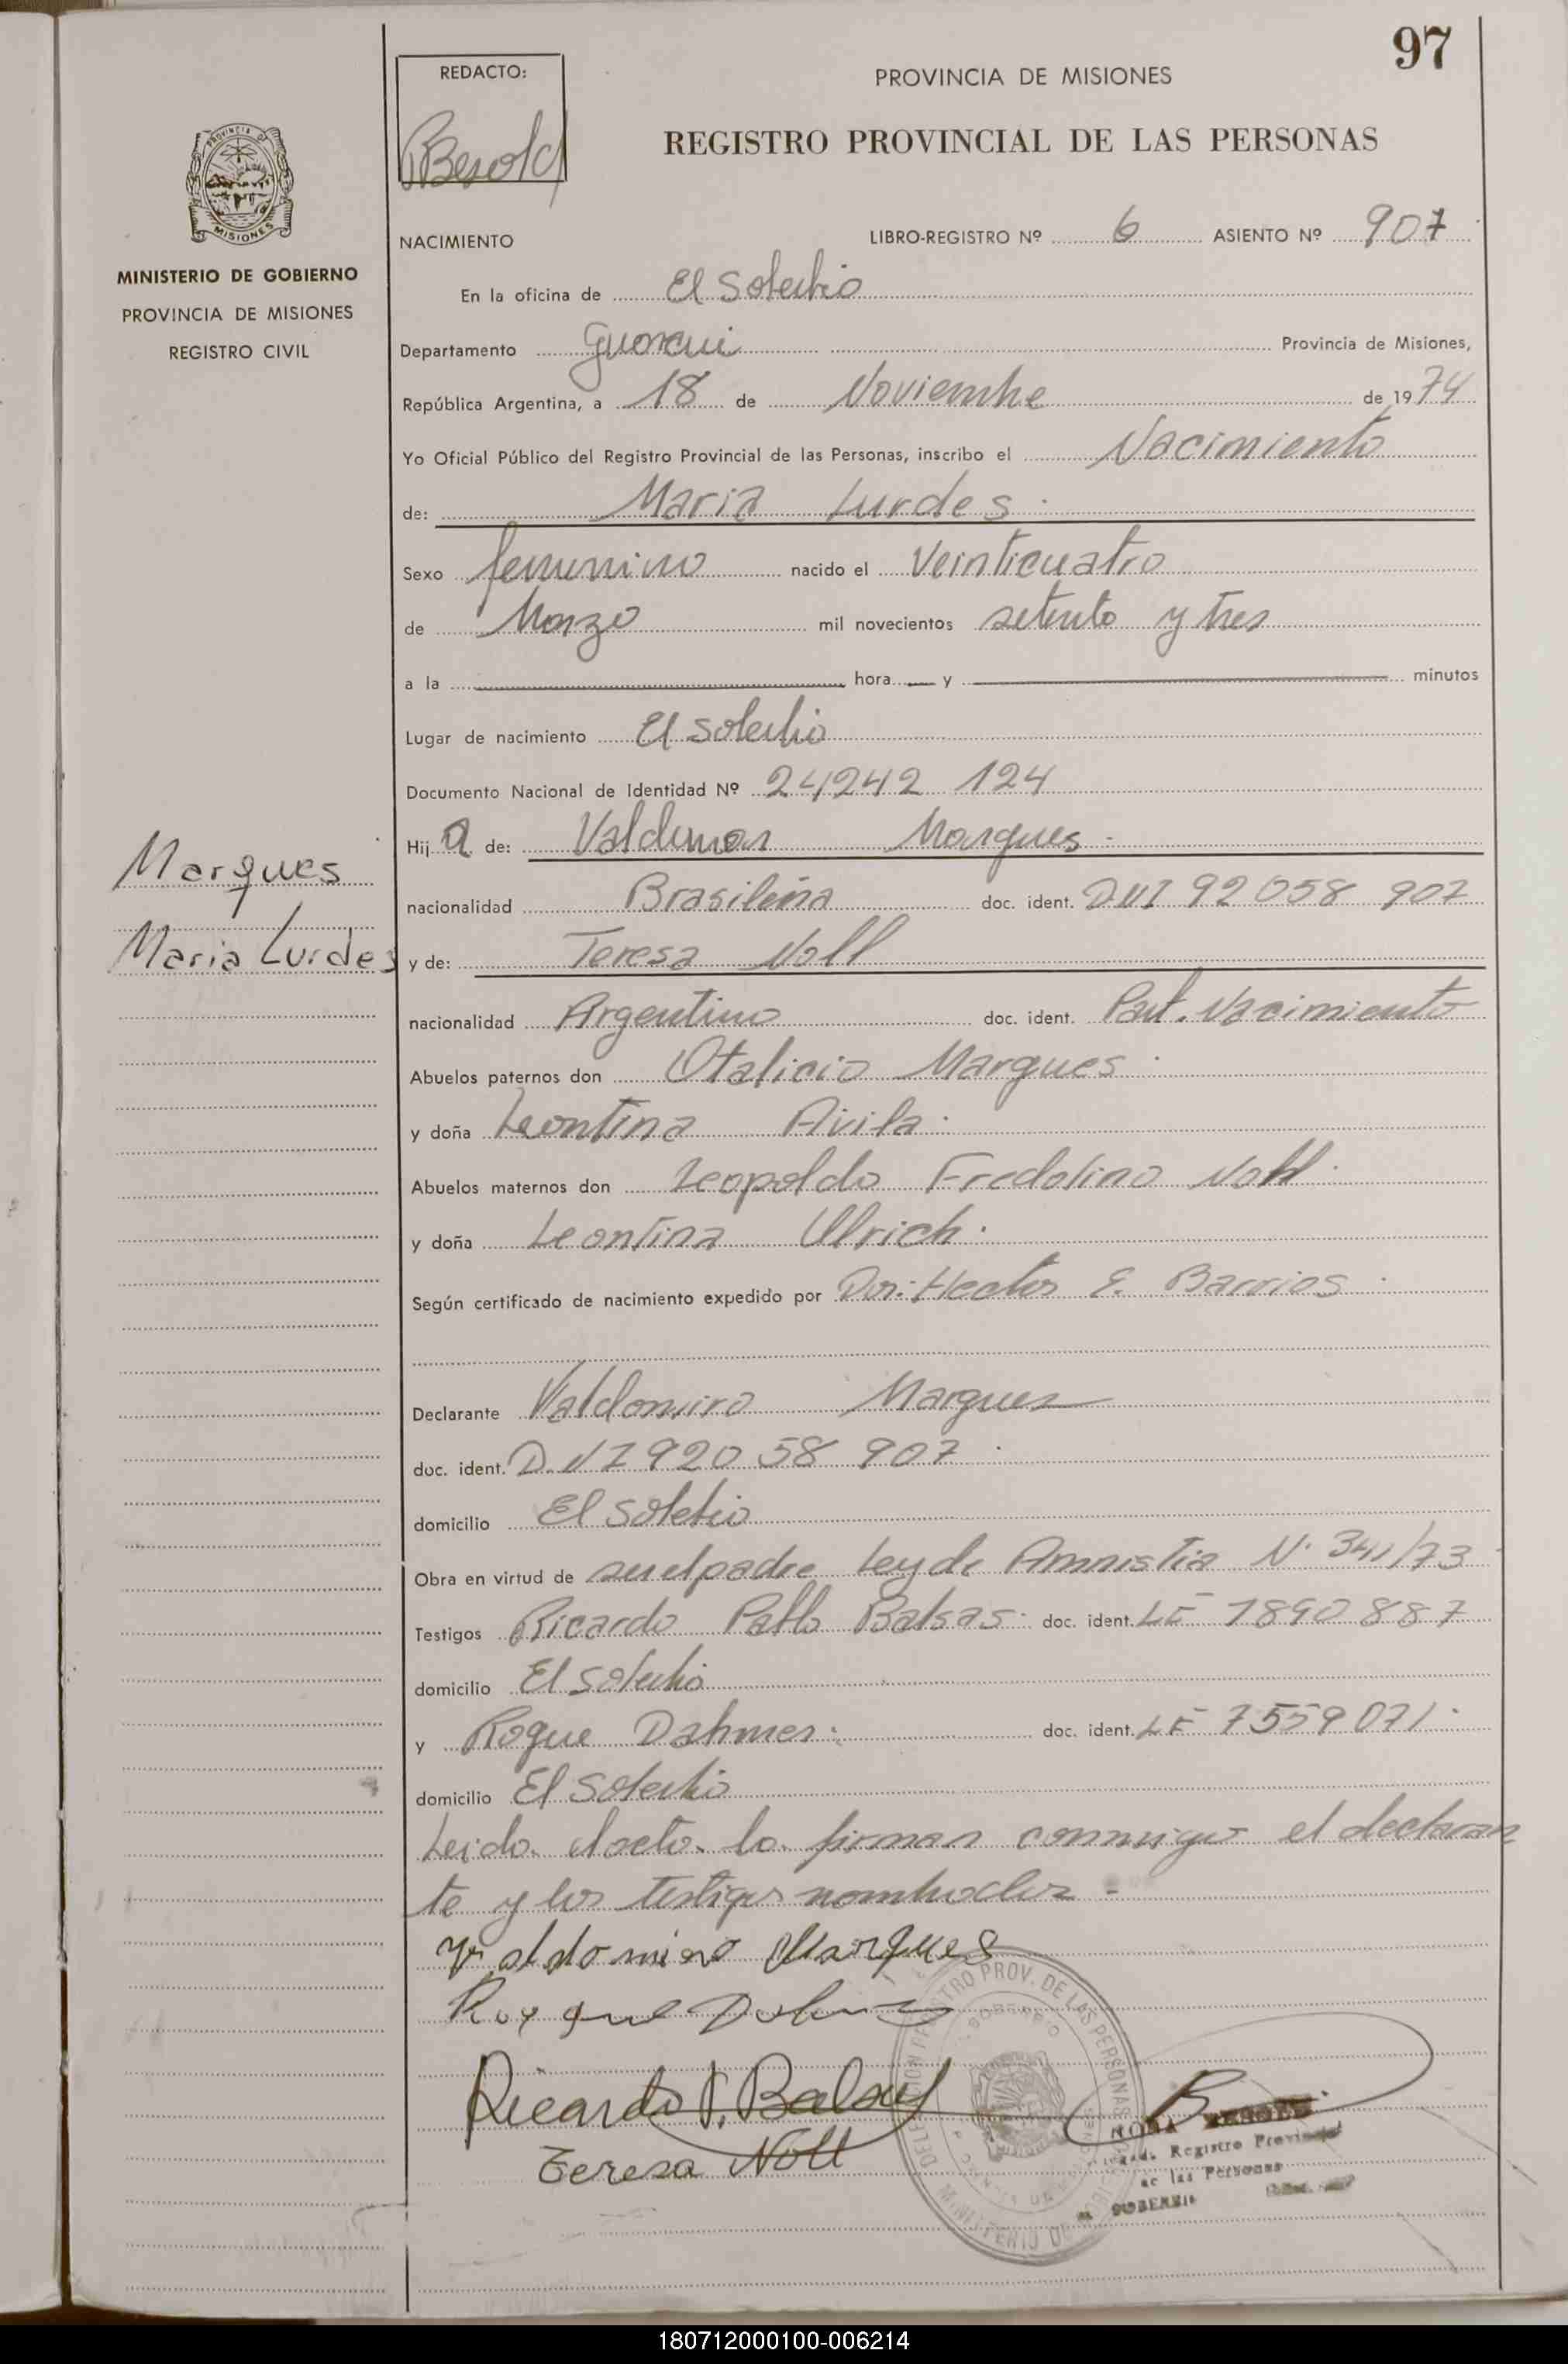 97
REDACTO:
PROVINCIA DE MISIONES
Besold
REGISTRO PROVINCIAL DE LAS PERSONAS
PROVINCIA DE
MISIONES
MINISTERIO DE GOBIERNO
PROVINCIA DE MISIONES
REGISTRO CIVIL
NACIMIENTO
LIBRO-REGISTRO Nº 6 ASIENTO Nº 907
En la oficina de El Soberbio
Departamento Guarani Provincia de Misiones,
República Argentina, a 18 de Noviembre de 1974
Yo Oficial Público del Registro Provincial de las Personas, inscribo el Nacimiento
de: Maria Lurdes.
Sexo femenino nacido el Veinticuatro
de Marzo mil novecientos setenta y tres
a la hora y minutos
Lugar de nacimiento El Soberbio
Documento Nacional de Identidad Nº 24242 124
Hija de: Valdemar Marques -
Marques
nacionalidad Brasileña doc. ident. DNI 92 058 907
Maria Lurdes
y de: Teresa Noll
nacionalidad Argentina doc. ident. Part. Nacimiento
Abuelos paternos don Otalicio Marques.
y doña Leontina Avila.
Abuelos maternos don Leopoldo Fredolino Noll.
y doña Leontina Ulrich.
Según certificado de nacimiento expedido por Dr. Hector E. Barrios.
Declarante Valdomiro Marques
doc. ident. D.NI 920 58 907.
domicilio El Soberbio
Obra en virtud de ser el padre Ley de Amnistia N. 341/73
Testigos Ricardo Pablo Balsas. doc. ident. LE 7890887
domicilio El Soberbio
y Roque Dahmer. doc. ident. LE 7559071.
domicilio El Soberbio
Leida el acta la firman conmigo el declaran
te y los testigos nombrados -
Valdomiro Marques
Roque
Ricardo P. Balsas
Teresa Noll
REGISTRO PROV. DE LAS PERSONAS
MINISTERIO DE
Registro Provincial
de las Personas
180712000100-006214